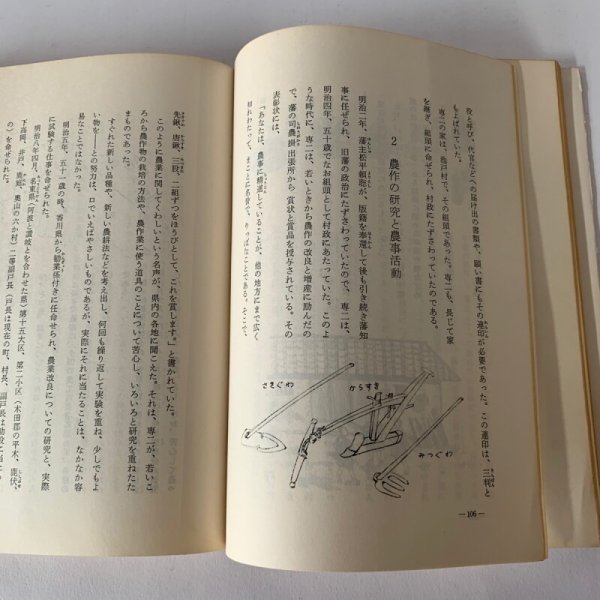 役と呼び、代官などへの届け出の書類や、願い書にもその連印が必要であった。この連印は、三判と
もよばれていた。
専二の家は、亀戸村で、その組頭であった。専二も、長じて家
を継ぎ、組頭に命ぜられ、村政にたずさわっていた。
2 農作の研究と農事活動
明治二年、藩主松平頼聡が、版籍を奉還して後も引き続き藩知
事に任ぜられ、旧藩の政治にたずさわっていたので、専二は、
明治四年、五十歳でなお組頭として村政にあたっていた。このよ
うな時代に、専二は、若いときから農作の改良と増産に励んだの
で、藩の司農掛出張所から、賞状と賞品を授与されている。その
表彰状には、
「あなたは、農事に精通していることが、他の地方にまで広く
知れわたって、まことに名誉で、りっぱなことである。そこで、
さきぐわ
からすき
みつぐわ
―106―
先鍬、唐鍬、三段、二組ずつをほうびとして、これを賞します。」と書かれていた。
このように農業に関してくわしいという名声が、県内の各地に聞こえた。それは、専二が、若いこ
ろから農作物の栽培の方法や、農作業に使う道具のことについて苦心し、いろいろと研究を重ねたた
まものであった。
すぐれた新しい品種や、新しい農耕法などを考え出し、何回も繰り返して実験を重ね、少しでもよ
い物を――との努力は、口でいえばやさしいものであるが、実際にそれに当たることは、なかなか容
易なことではなかった。
明治五年、五十一歳の時、香川県から勧業係付きに任命せられ、農業改良についての研究と、実際
に試験する仕事を命ぜられた。
明治八年四月、名東県(阿波と讃岐とを合わせた県)第十五大区、第二小区(木田郡の平木、鹿伏、
下高岡、井戸、鹿庭、奥山の六か村)一等副戸長(戸長は現在の町、村長、副戸長は助役に当
の)を命ぜられた。